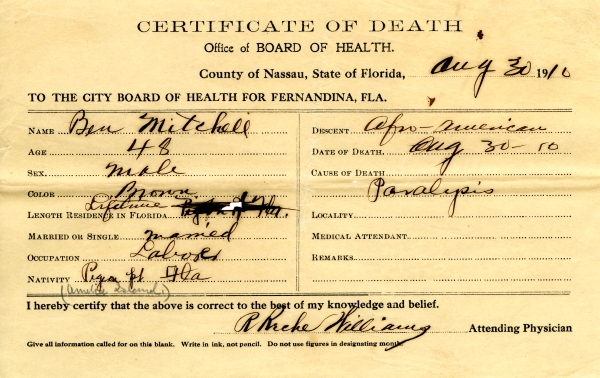 CERTIFICATE OF DEATH
Office of BOARD OF HEALTH.
County of Nassau, State of Florida, Aug 30 1910
TO THE CITY BOARD OF HEALTH FOR FERNANDINA, FLA.
NAME Ben Mitchell
AGE 48
SEX. male
COLOR Brown
LENGTH RESIDENCE IN FLORIDA Lifetime
MARRIED OR SINGLE married
OCCUPATION Laborer
NATIVITY Fla
(Amelia Island.)
DESCENT Afro-American
DATE OF DEATH. Aug 30-10
CAUSE OF DEATH
Paralysis
LOCALITY
MEDICAL ATTENDANT
REMARKS
I hereby certify that the above is correct to the best of my knowledge and belief.
Williams Attending Physician
Give all information called for on this blank. Write in ink, not pencil. Do not use figures in designating month.